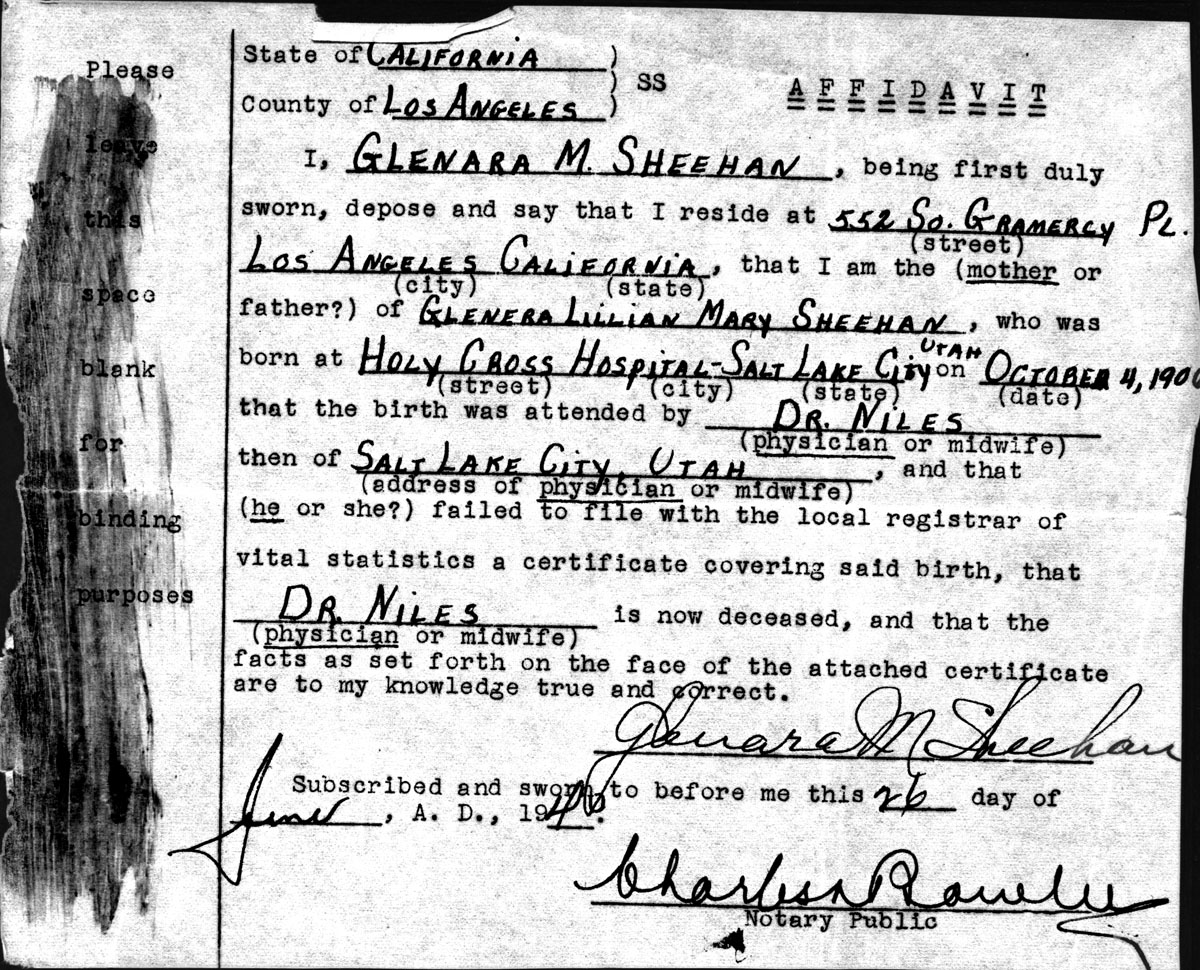 State of CALIFORNIA )
) SS
AFFIDAVIT
County of LOS ANGELES )
I, GLENARA M. SHEEHAN, being first duly
sworn, depose and say that I reside at 552 SO. GRAMERCY PL.
(street)
LOS ANGELES CALIFORNIA, that I am the (mother or
(city) (state)
father?) of GLENERA LILLIAN MARY SHEEHAN, who was
born at HOLY CROSS HOSPITAL-SALT LAKE CITY UTAH on OCTOBER 4,
(street) (city) (state) (date)
that the birth was attended by DR. NILES
(physician or midwife)
then of SALT LAKE CITY, UTAH, and that
(address of physician or midwife)
(he or she?) failed to file with the local registrar of
vital statistics a certificate covering said birth, that
DR. NILES is now deceased, and that the
(physician or midwife)
facts as set forth on the face of the attached certificate
are to my knowledge true and correct.
Glenara M Sheehan
Subscribed and sworn to before me this 26 day of
June, A. D., 1940.
Notary Public
Please
leave
this
space
blank
for
binding
purposes